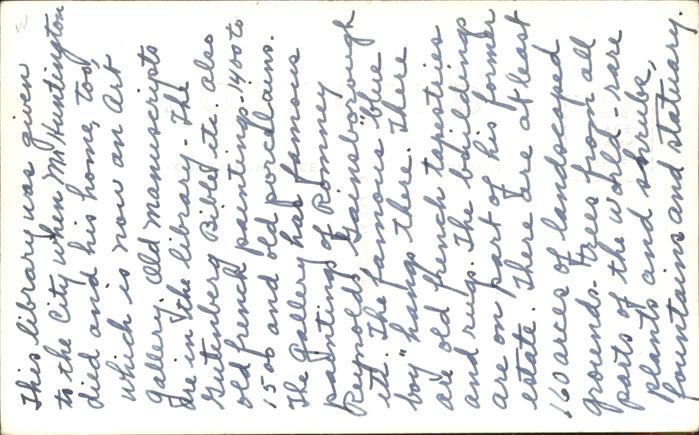 This library was given
to the City when Mr Huntington
died and his home, too,
which is now an Art
gallery. Old manuscripts
are in the library - The
Gutenberg Bible etc. also
old french paintings - 1400 to
1500 and old porcelains.
The Gallery has famous
paintings of Romney
Reynolds Gainsborough
etc. The famous "blue
boy" hangs there. There
are old french tapestries
and rugs. The buildings
are on part of his former
estate. There are at least
160 acres of landscaped
grounds - trees from all
parts of the world, rare
plants and shrubs,
fountains and statuary.